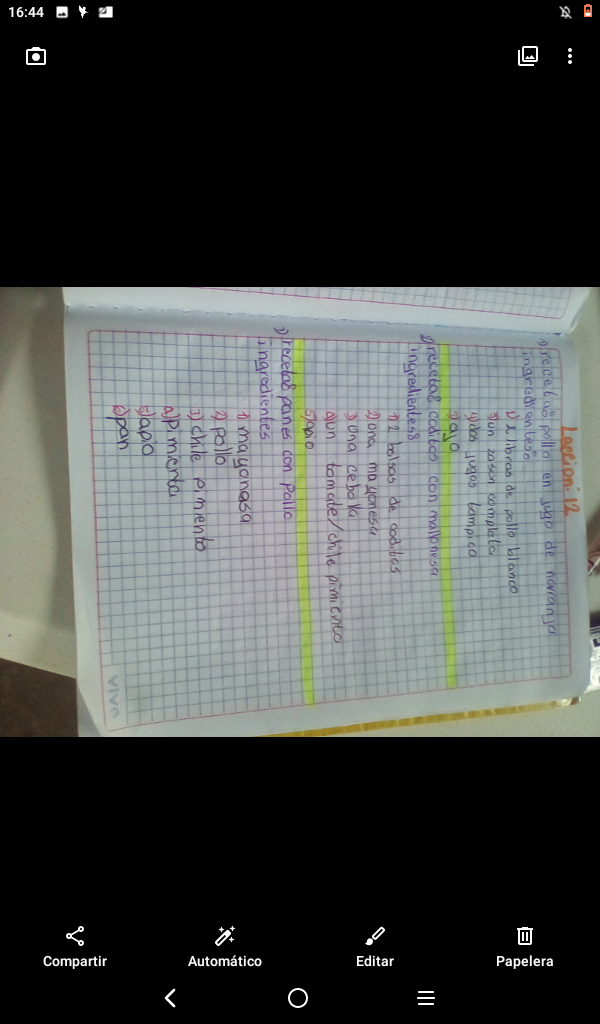 16:44
Leccion. 12
1) receta: pollo en jugo de narranja
ingredientes:
1) 2 libras de pollo blanco
2) un sason completa
3) dos jugos tampico
4) ajo
2) receta: coditos con mallonesa
ingredientes:
1) 2 bolsas de coditos
2) una mayonesa
3) una cebolla
4) un tomate/chile pimiento
5) apio
3) receta: panes con pollo
ingredientes
1) mayonasa
2) pollo
3) chile pimiento
4) Pimienta
5) apio
6) pan
VIVA
Compartir
Automático
Editar
Papelera